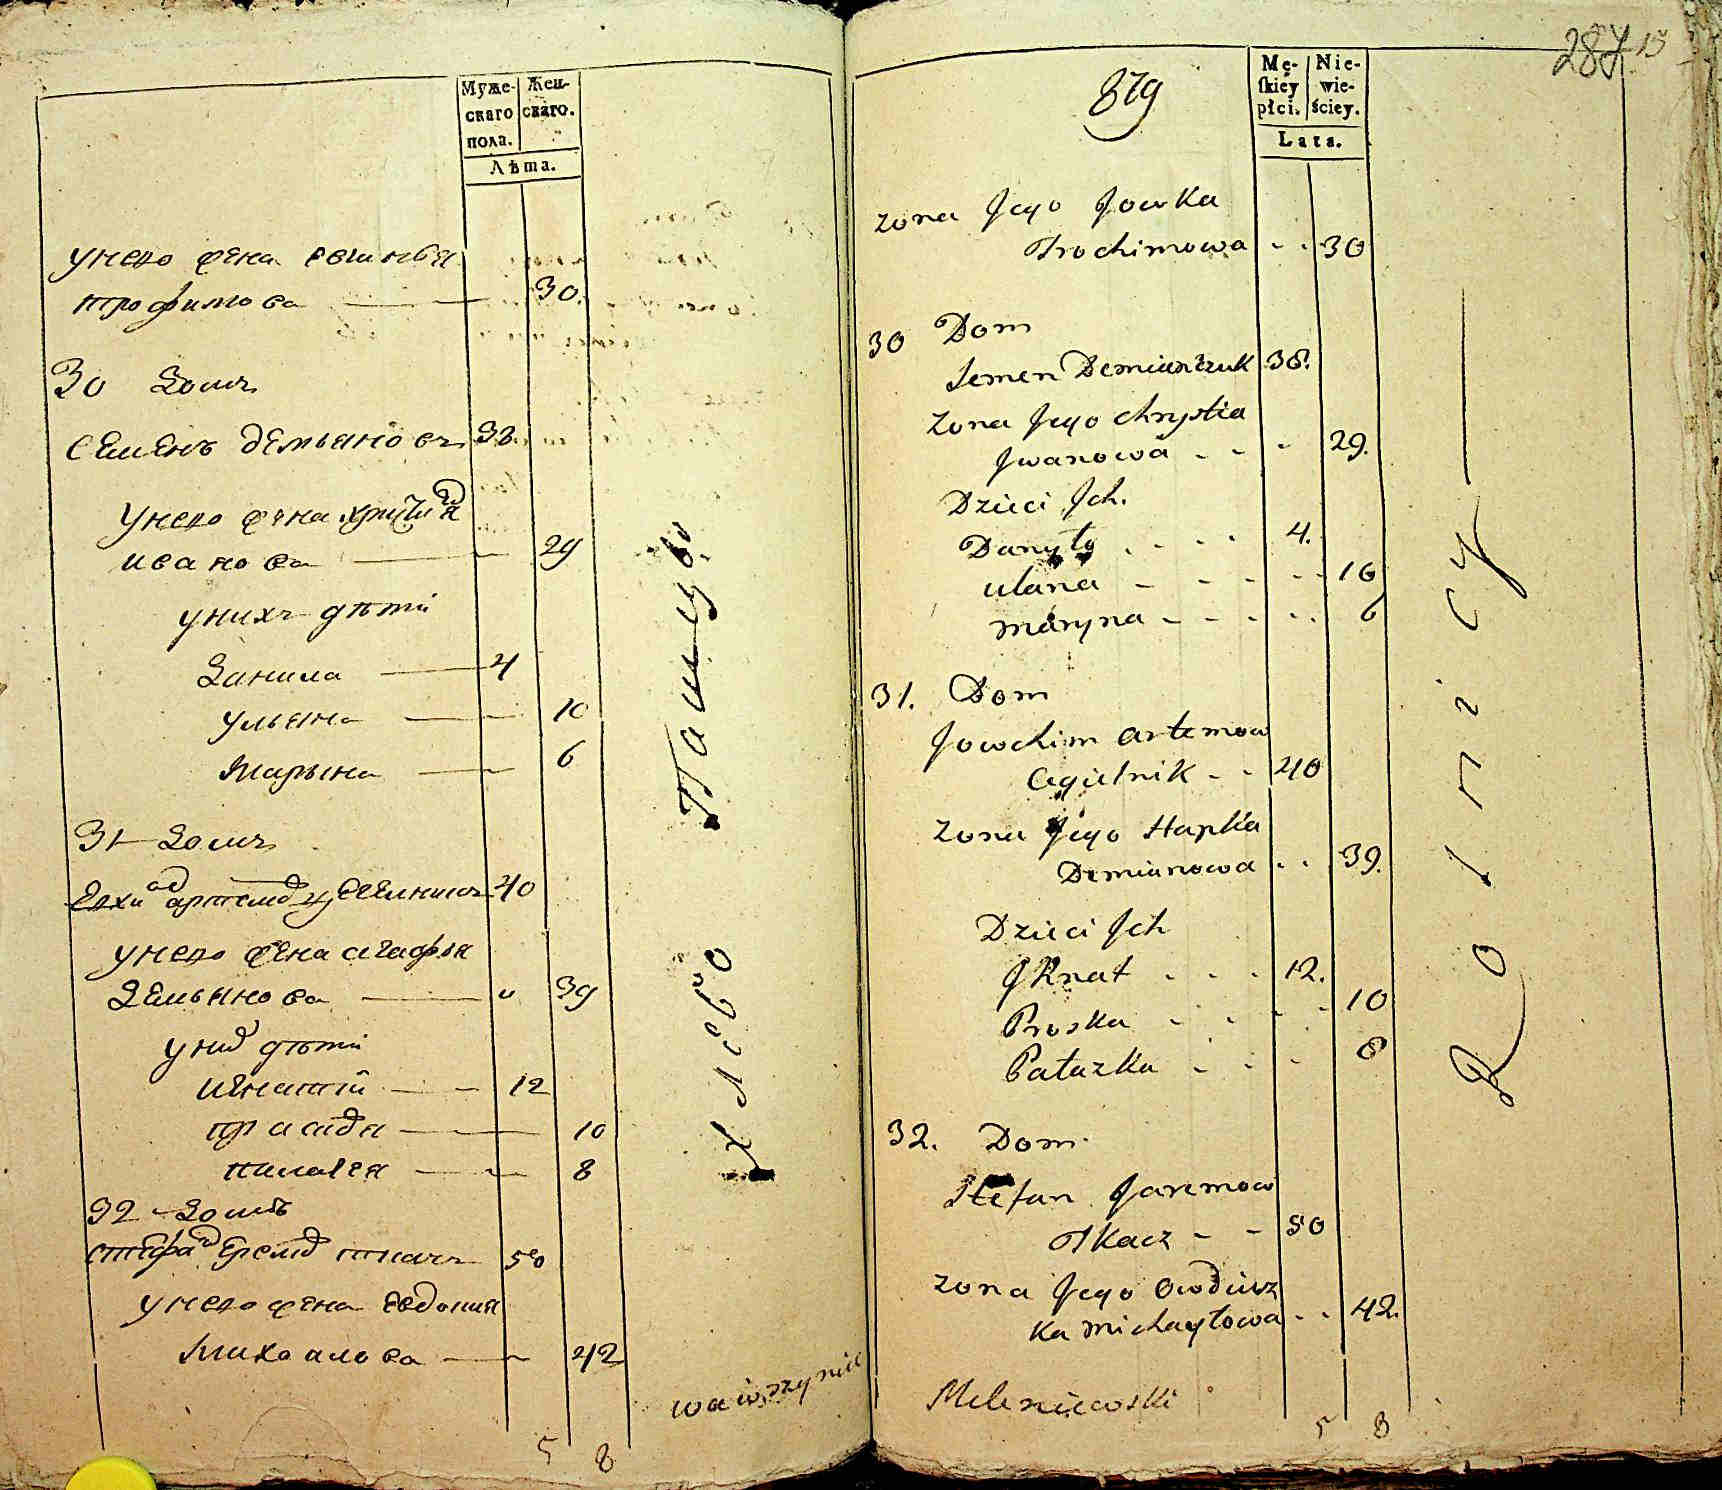 Муже-
скаго
пола.
Жен-
скаго.
Лѣта.
унего жена евгинья
трофимова 30.
30 Домъ
Семенъ демьяновъ 38
унего жена христия
иванова 29
унихъ дѣти
Данила 4
ульяна 10
Марьяна 6
31 Домъ
артемов 40
унего жена агафья
Демьянова 39
уних дѣти
игнатій 12
праскдя 10
пилагея 8
32 Домъ
стефан Ерем ткачъ 50
унего жена евдокия
Михайлова 42
5 8
Пашцы
wawrzyniec
879
287 15
Mę-
skiey
płci.
Nie-
wie-
ściey.
Lata.
zona Jego Jowka
Trochimowa 30
30 Dom
Semen Demianczuk 38.
zona Jego Chrystia
Jwanowa 29.
Dzieci Jch.
Danyło 4.
ulana 10
maryna 6
31. Dom
Jowchim artemow
Cegielnik 40
zona Jego Hapka
Demianowa 39.
Dzieci Jch
JKnat 12.
Proska 10
Pałazka 8
32. Dom
Stefan Jaremow
TKacz 50
zona Jego Owdusz
ka michayłowa 42.
Meleniewski
5 8
Rolnicy